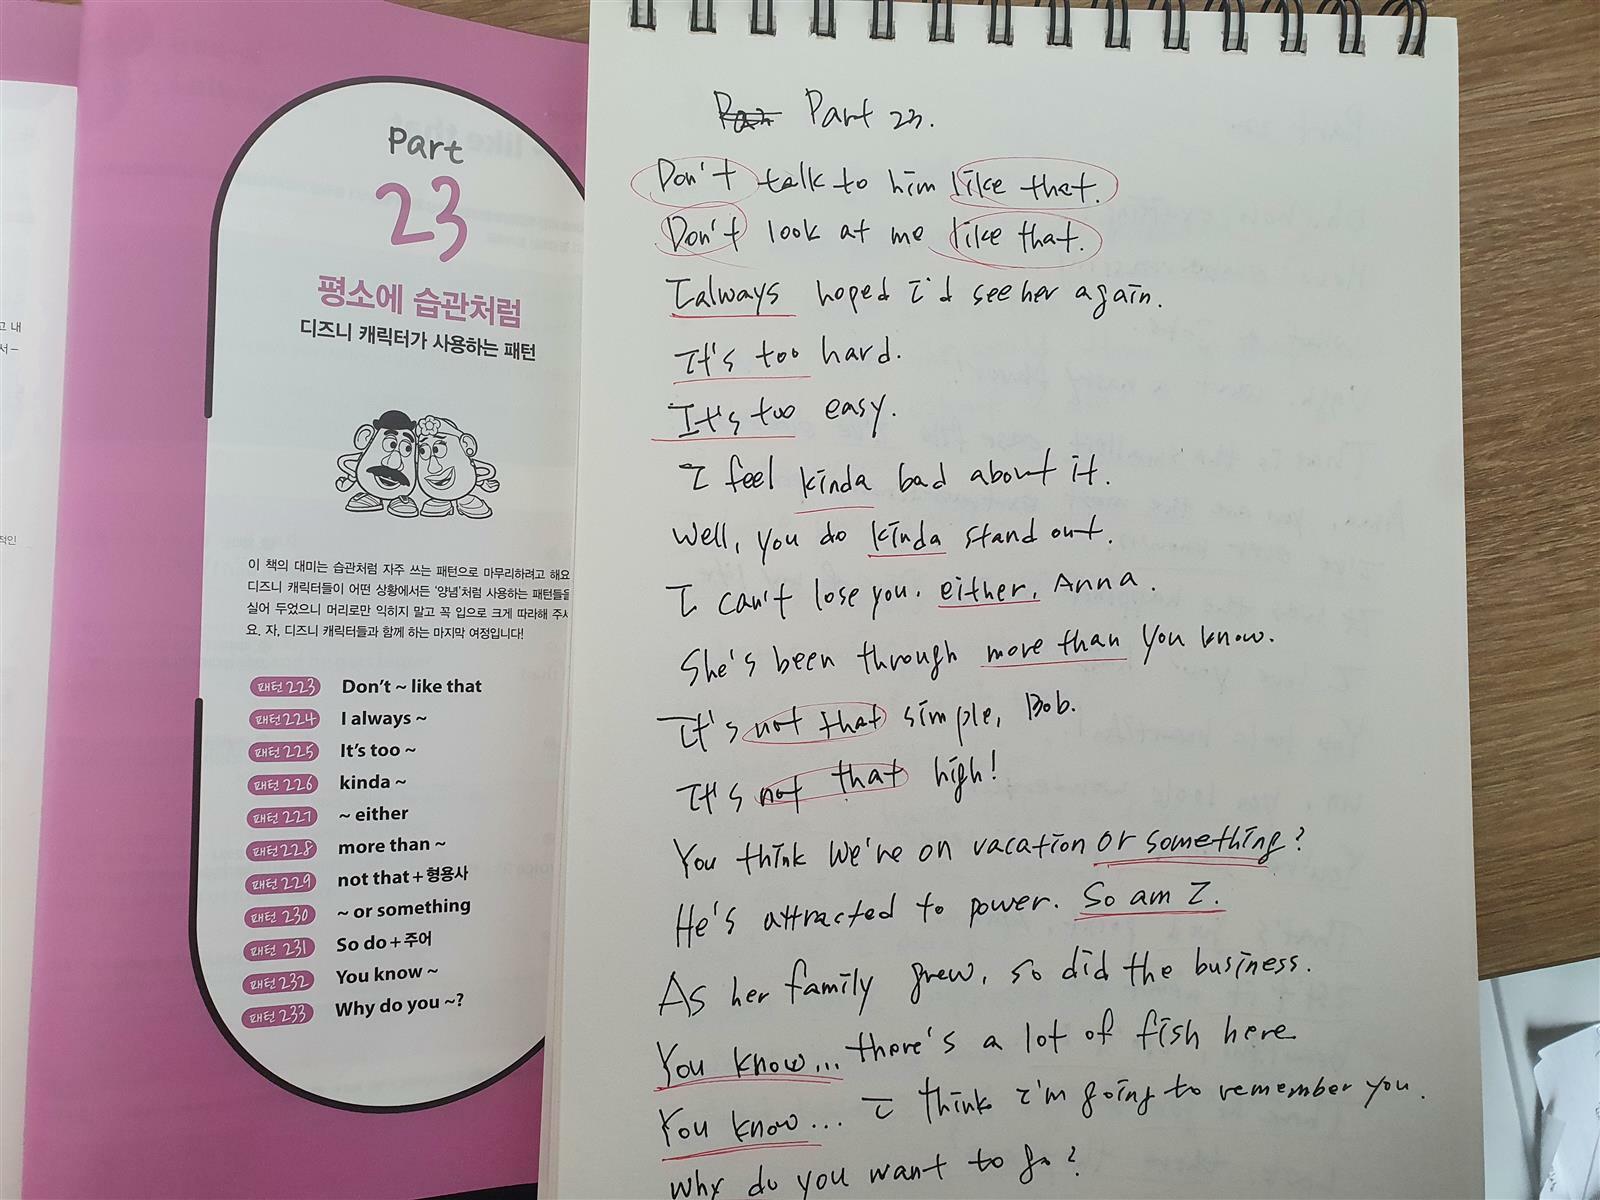 고 내
서-
적인
Part
23
평소에 습관처럼
디즈니 캐릭터가 사용하는 패턴
이 책의 대미는 습관처럼 자주 쓰는 패턴으로 마무리하려고 해요
디즈니 캐릭터들이 어떤 상황에서든 '양념'처럼 사용하는 패턴들을
실어 두었으니 머리로만 익히지 말고 꼭 입으로 크게 따라해 주세
요. 자, 디즈니 캐릭터들과 함께 하는 마지막 여정입니다!
패턴 223 Don't ~ like that
패턴 224 I always ~
패턴 225 It's too ~
패턴 226 kinda ~
패턴 227 ~ either
패턴 228 more than ~
패턴 229 not that + 형용사
패턴 230 ~ or something
패턴 231 So do + 주어
패턴 232 You know ~
패턴 233 Why do you ~?
Part 23.
Don't talk to him like that.
Don't look at me like that.
I always hoped I'd see her again.
It's too hard.
It's too easy.
I feel kinda bad about it.
Well, you do kinda stand out.
I can't lose you, either, Anna.
She's been through more than you know.
It's not that simple, Bob.
It's not that high!
You think we're on vacation or something?
He's attracted to power. So am I.
As her family grew, so did the business.
You know... there's a lot of fish here
You know... I think I'm going to remember you.
Why do you want to go?